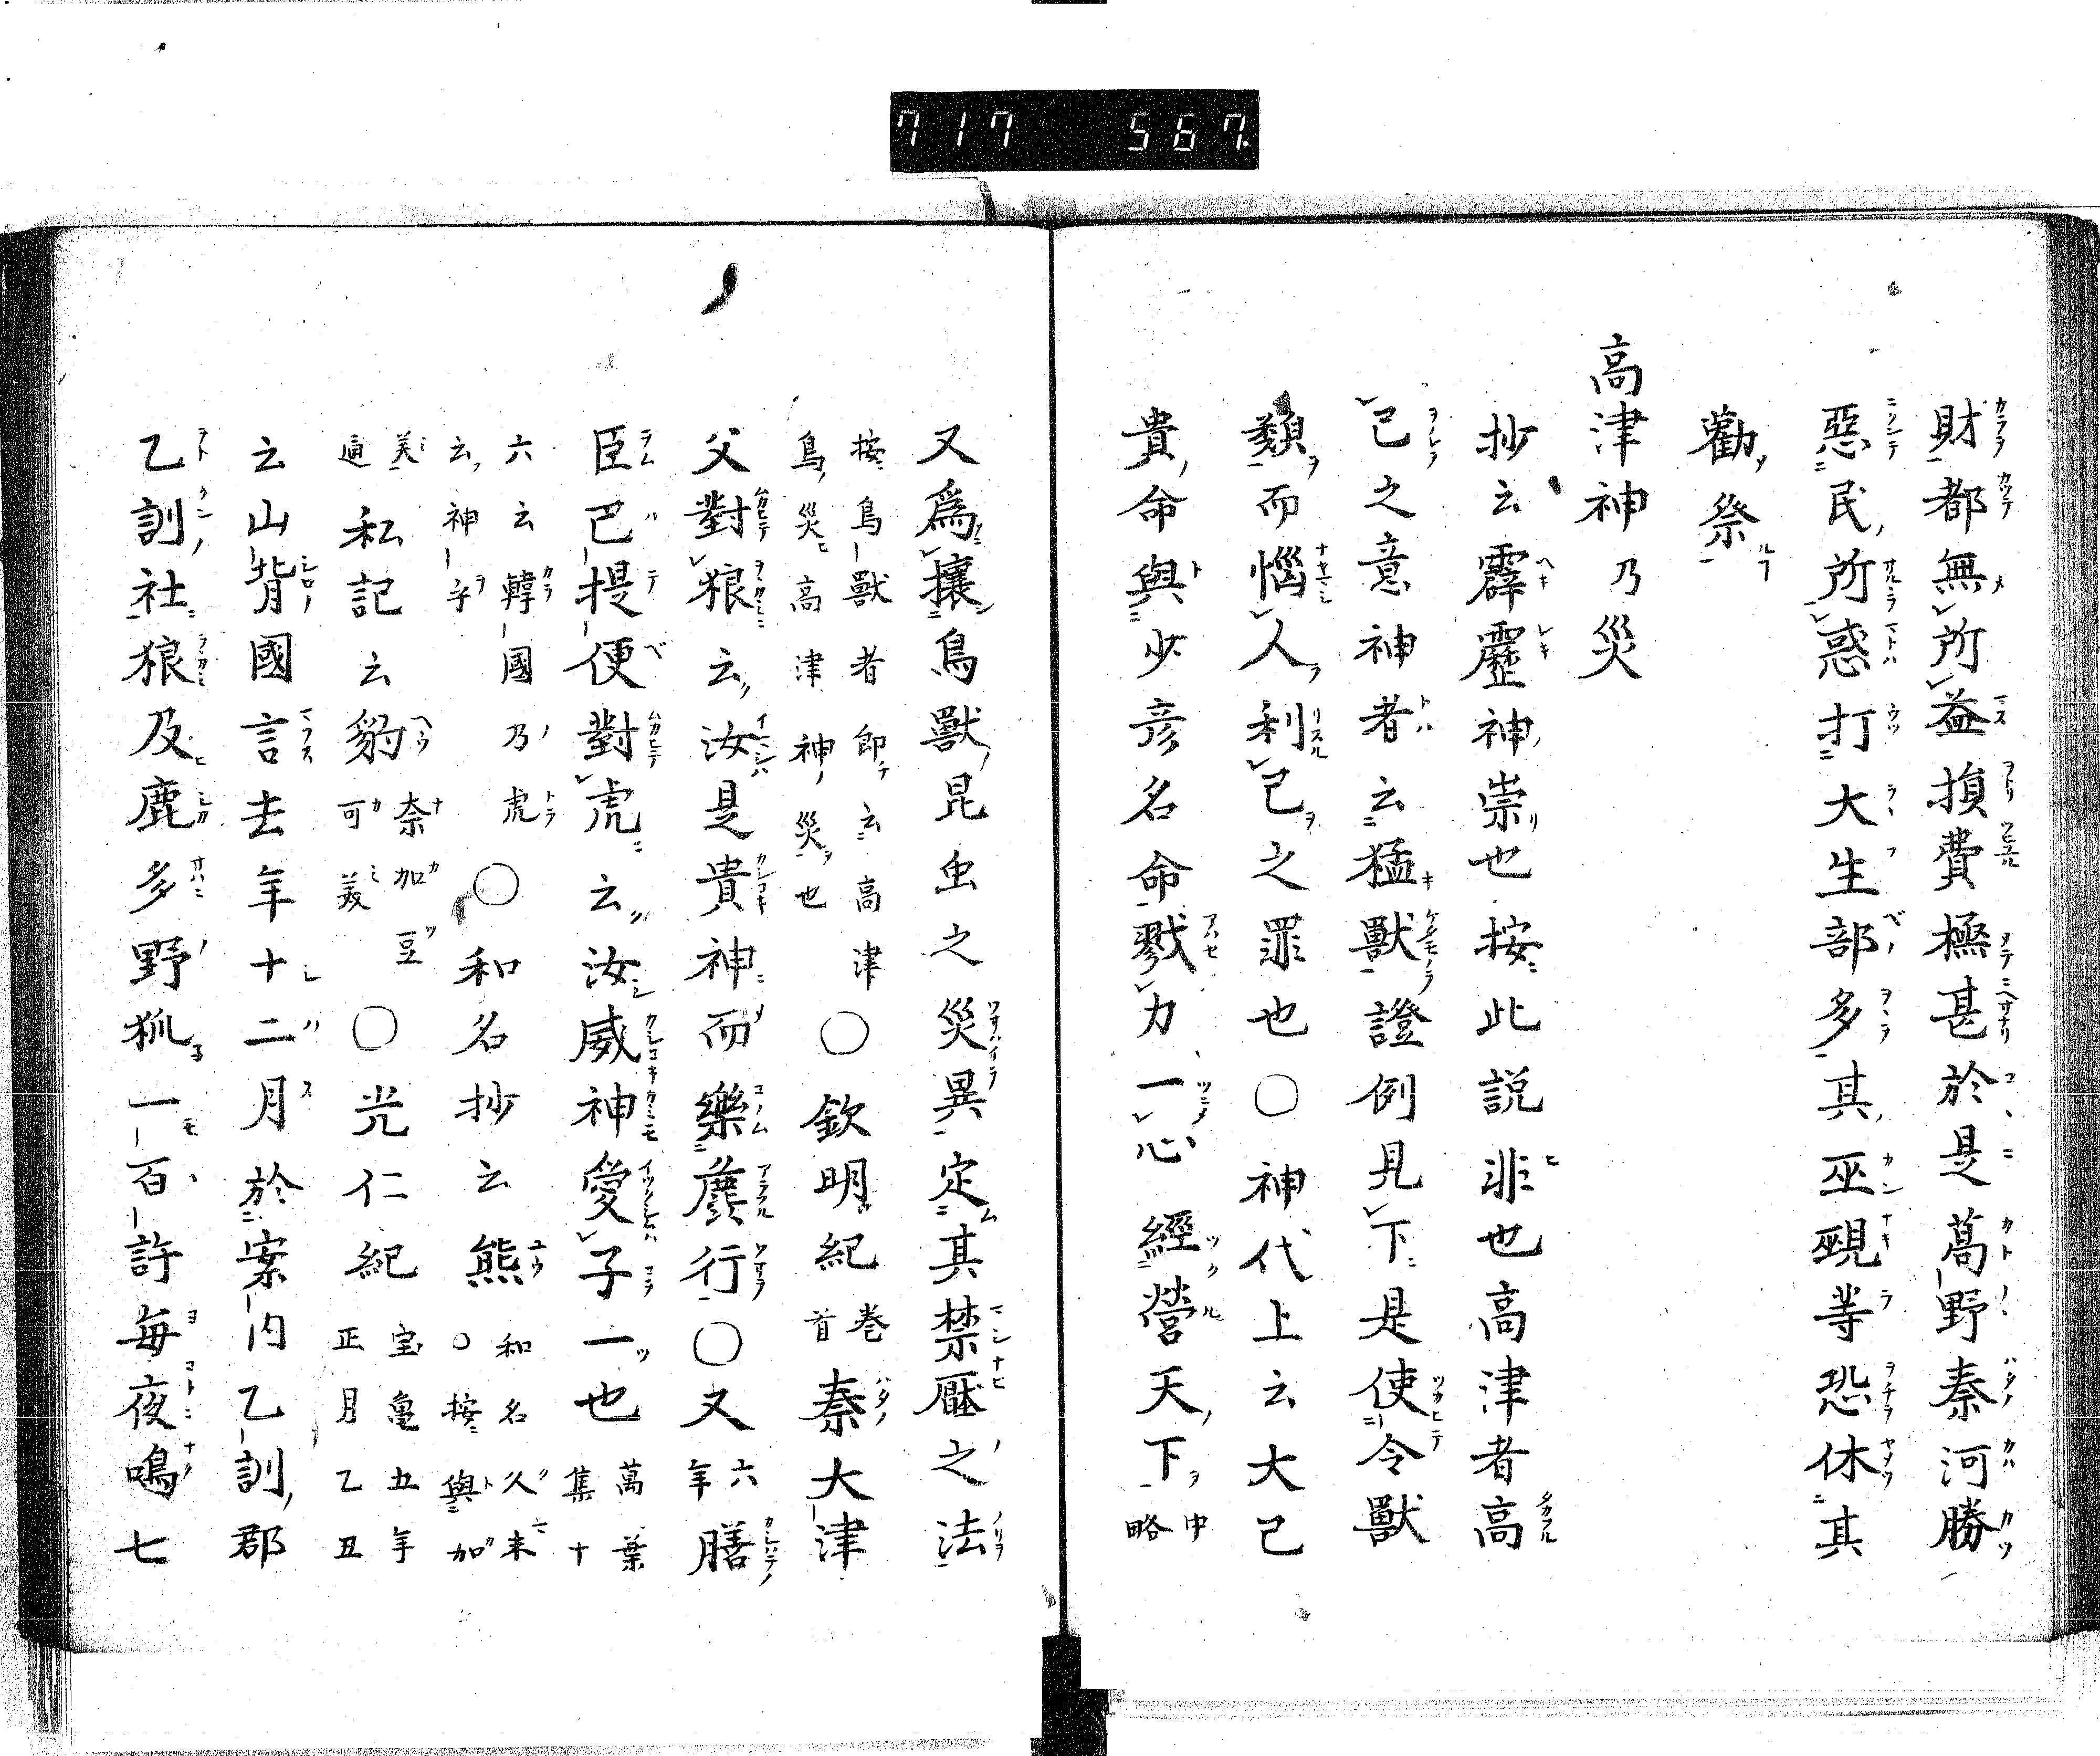 717 567.
財都無所益損費極甚於是葛野秦河勝
惡民所惑打大生部多其巫覡等恐休其
勸祭
高津神乃災
抄云霹靂神祟也按此説非也高津者高
己之意神者云猛獸證例見下是使令獸
類而惱人利己之罪也○神代上云大己
貴命與少彦名命戮力一心經營天下中略
又為攘鳥獸昆虫之災異定其禁厭之法
按鳥獸者即云高津
鳥災高津神災也
○欽明紀巻首秦大津
父對狼云汝是貴神而樂麁行○又六年膳
臣巴提便對虎云汝威神愛子一也萬葉集十
六云韓國乃虎
云神乎
○和名抄云熊和名久末○按與加
美通私記云豹奈加豆可美○光仁紀宝亀五年正月乙丑
云山背國言去年十二月於案内乙訓郡
乙訓社狼及鹿多野狐一百許毎夜鳴七